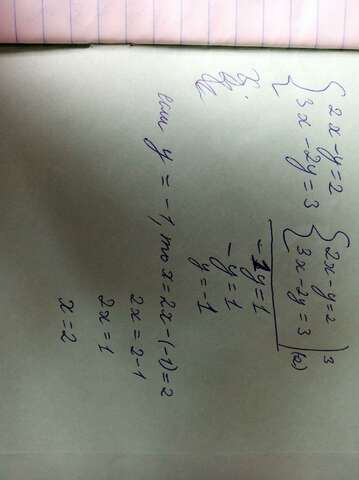 { 2x - y = 2
{ 3x - 2y = 3
{ 2x - y = 2 | 3
{ 3x - 2y = 3 | (2)
- 1y = 1
- y = 1
y = -1
если y = -1, то x = 2x - (-1) = 2
2x = 2 - 1
2x = 1
x = 2